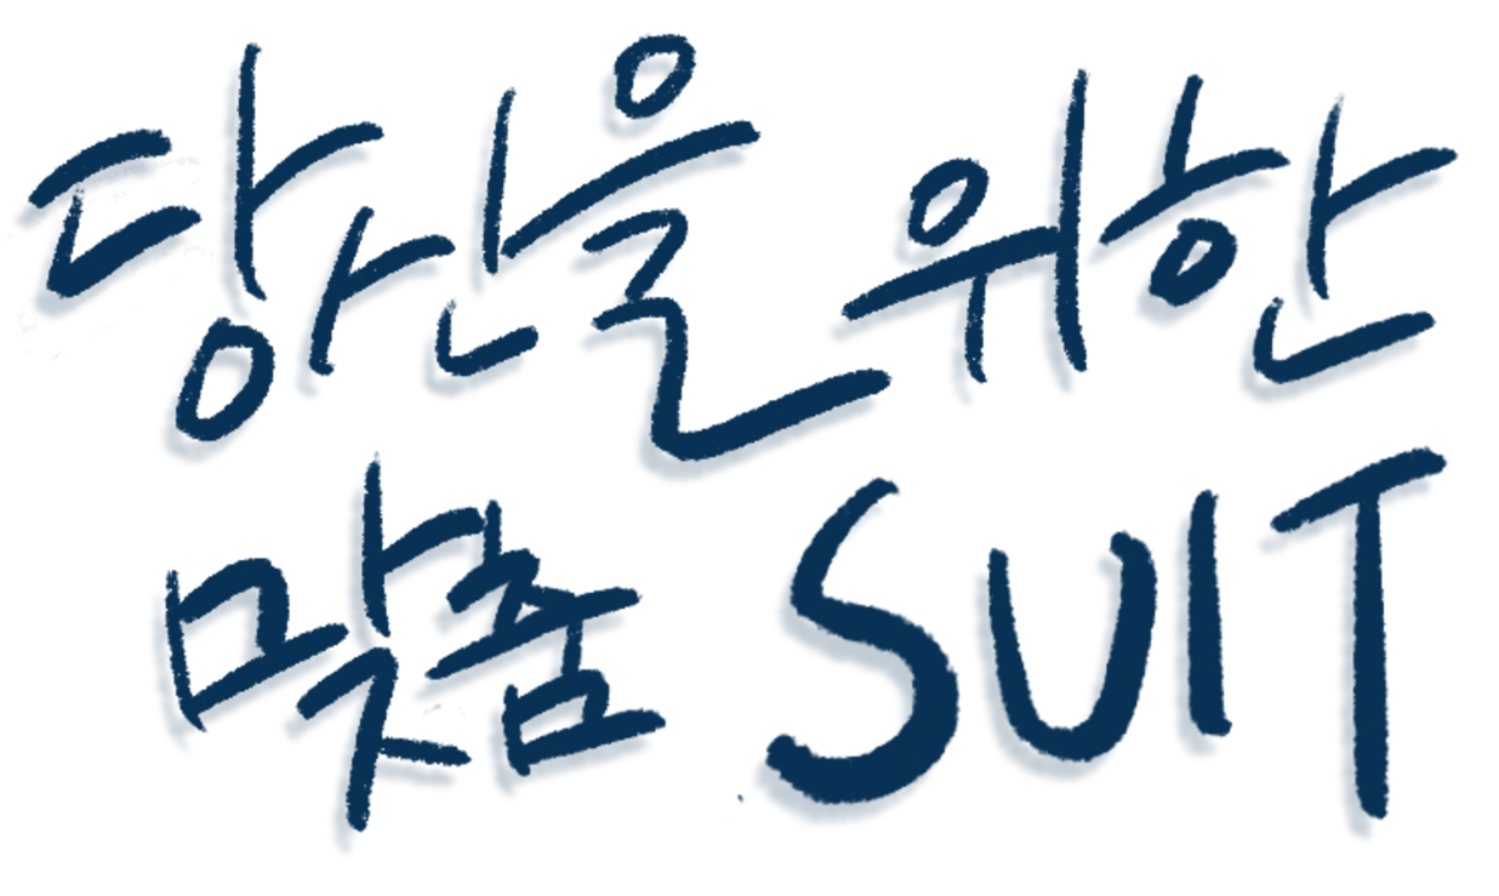 당신을 위한
맞춤 SUIT